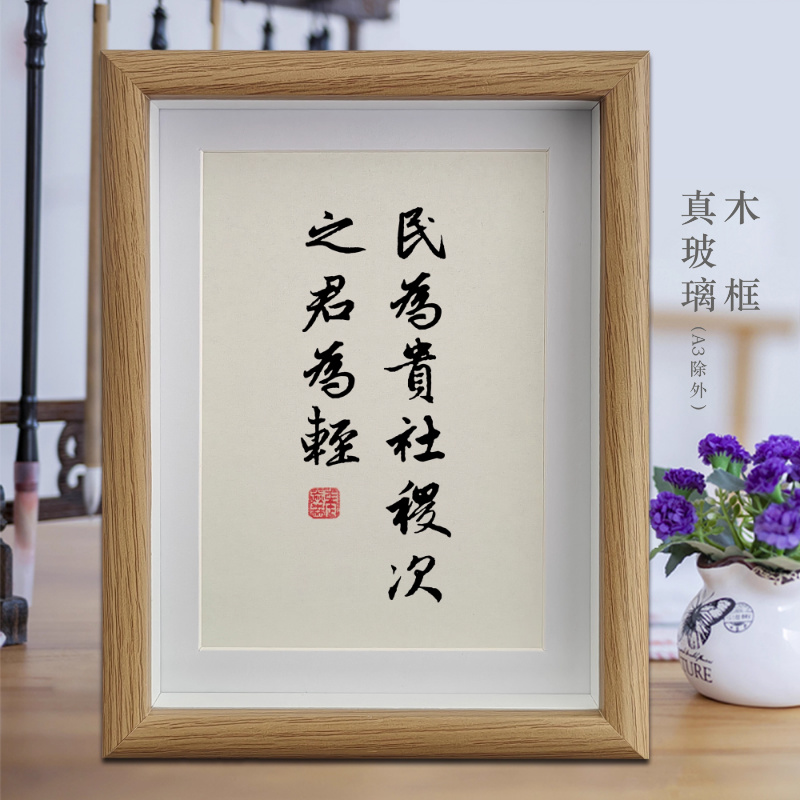 民為貴社稷次
之君為輕
木框
真玻璃(A3除外)